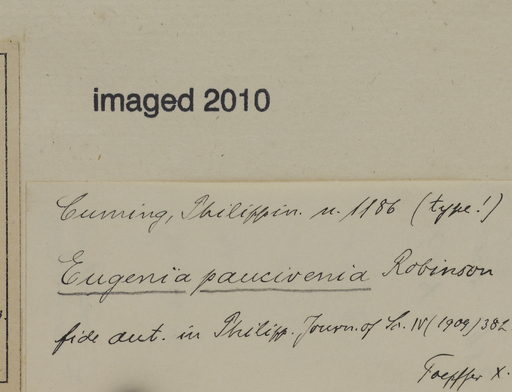 imaged 2010
Cuming, Philippin. n. 1186 (type!)
Eugenia paucivenia Robinson
fide aut. in Philipp. Journ. of Sc. IV (1909) 382
Toepffer X.